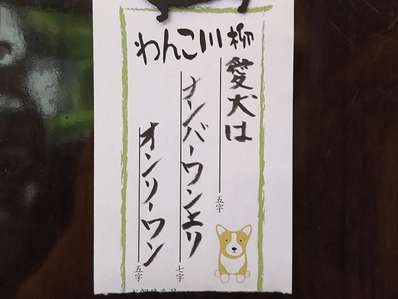 わんこ川柳
愛犬は
五字
ナンバーワンより
七字
オンリーワン
五字